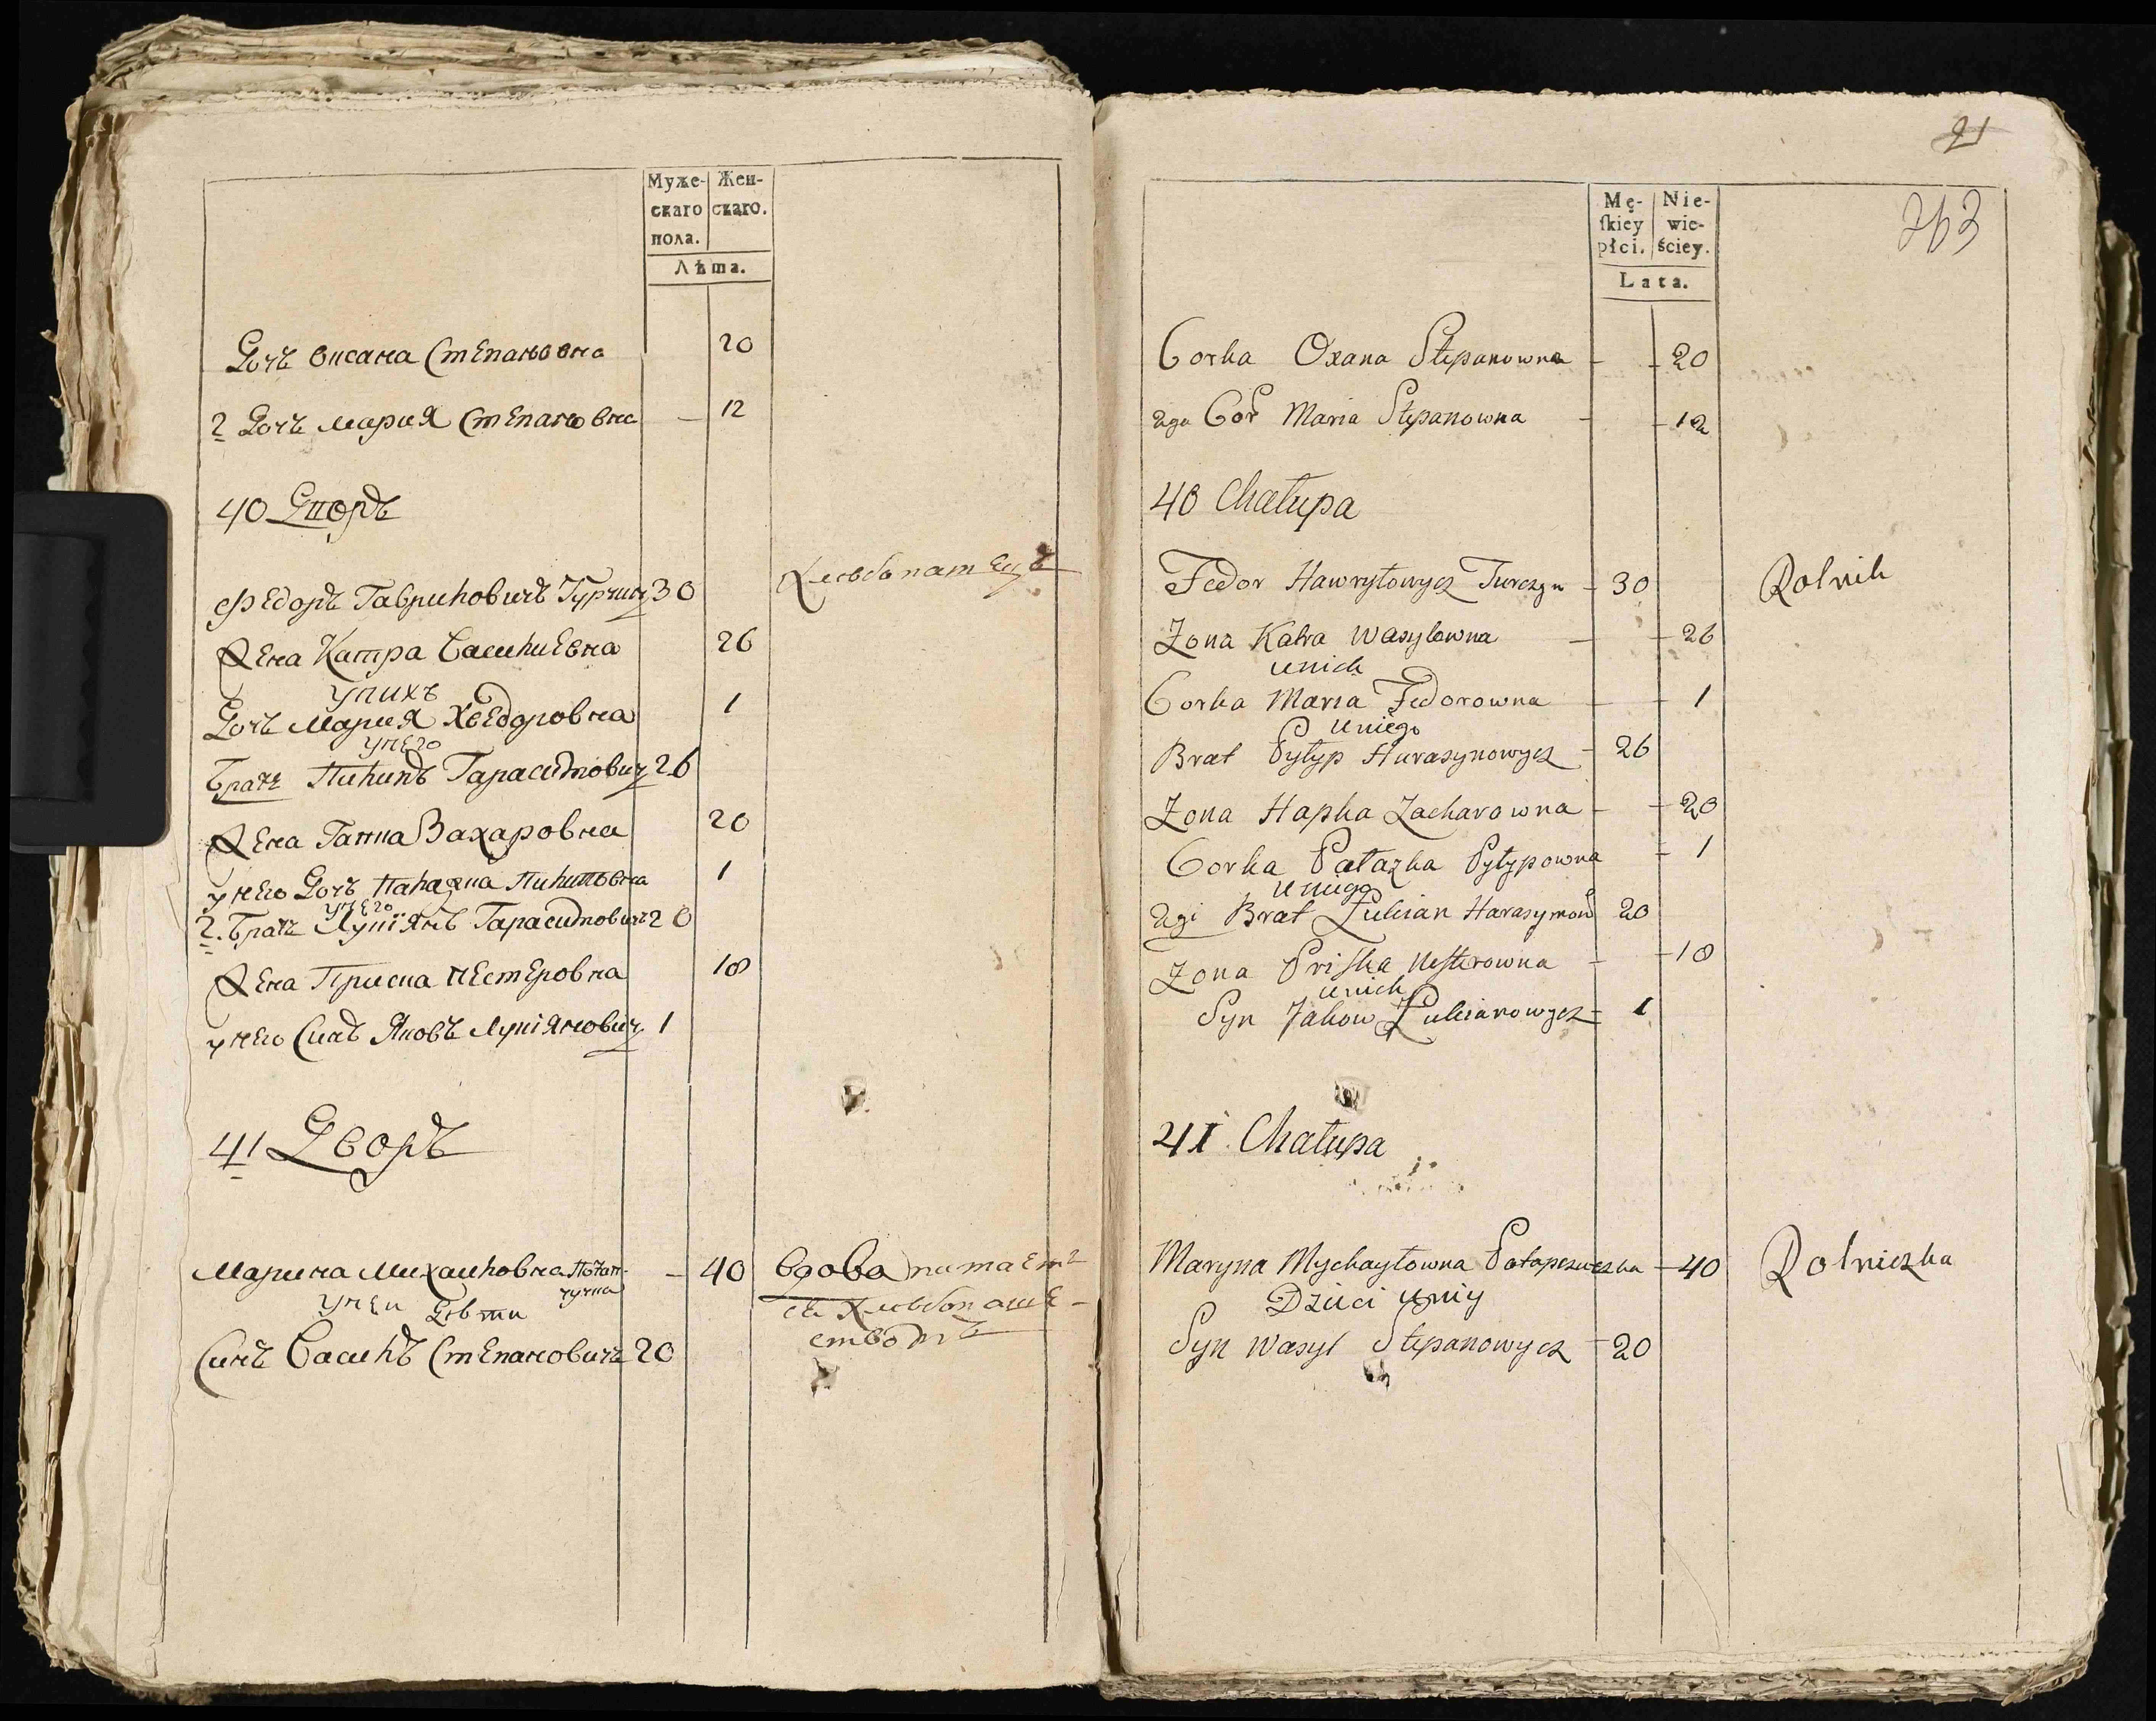 Муже-
скаго
пола.
Жен-
скаго.
Лѣта.
Дочъ Оксана Степановна 20
2 Дочъ Мария Степановна — 12
40 Дворъ
Федоръ Гавриловичъ Турчин 30 Хлебопашецъ
Жена Катра Василиевна 26
у нихъ
Дочъ Мария Хведоровна 1
у него
Братъ Пилипъ Гарасимович 26
Жена Гапка Захаровна 20
у него Дочъ Палажка Пилиповна 1
у него
2. Братъ Лукіянъ Гарасимович 20
Жена Приска Нестеровна 18
у него Синъ Яковъ Лукіянович 1
41 Дворъ
Марина Михайловна — 40 вдова питает
у неи Дѣти ся хлебопаше-
Синъ Василъ Степановичъ 20 ствомъ
21
263
Mę-
skiey
płci.
Nie-
wie-
ściey.
Lata.
Corka Oxana Stepanowna - - 20
2ga Cor Maria Stepanowna - - 12
40 Chałupa
Fedor Hawryłowycz Turczyn - 30 Rolnik
Zona Katra Wasylowna - - 26
u nich
Corka Maria Fedorowna - - 1
u niego
Brat Pyłyp Harasymowycz - 26
Zona Hapka Zacharowna - - 20
Corka Pałazka Pyłypowna - 1
u niego
2gi Brat Łukian Harasymow 20
Zona Priska Nesterowna - - 18
u nich
Syn Jakow Łukianowycz - 1
41 Chałupa
Maryna Mychayłowna - 40 Rolniczka
Dzieci u niy
Syn Wasyl Stepanowycz - 20